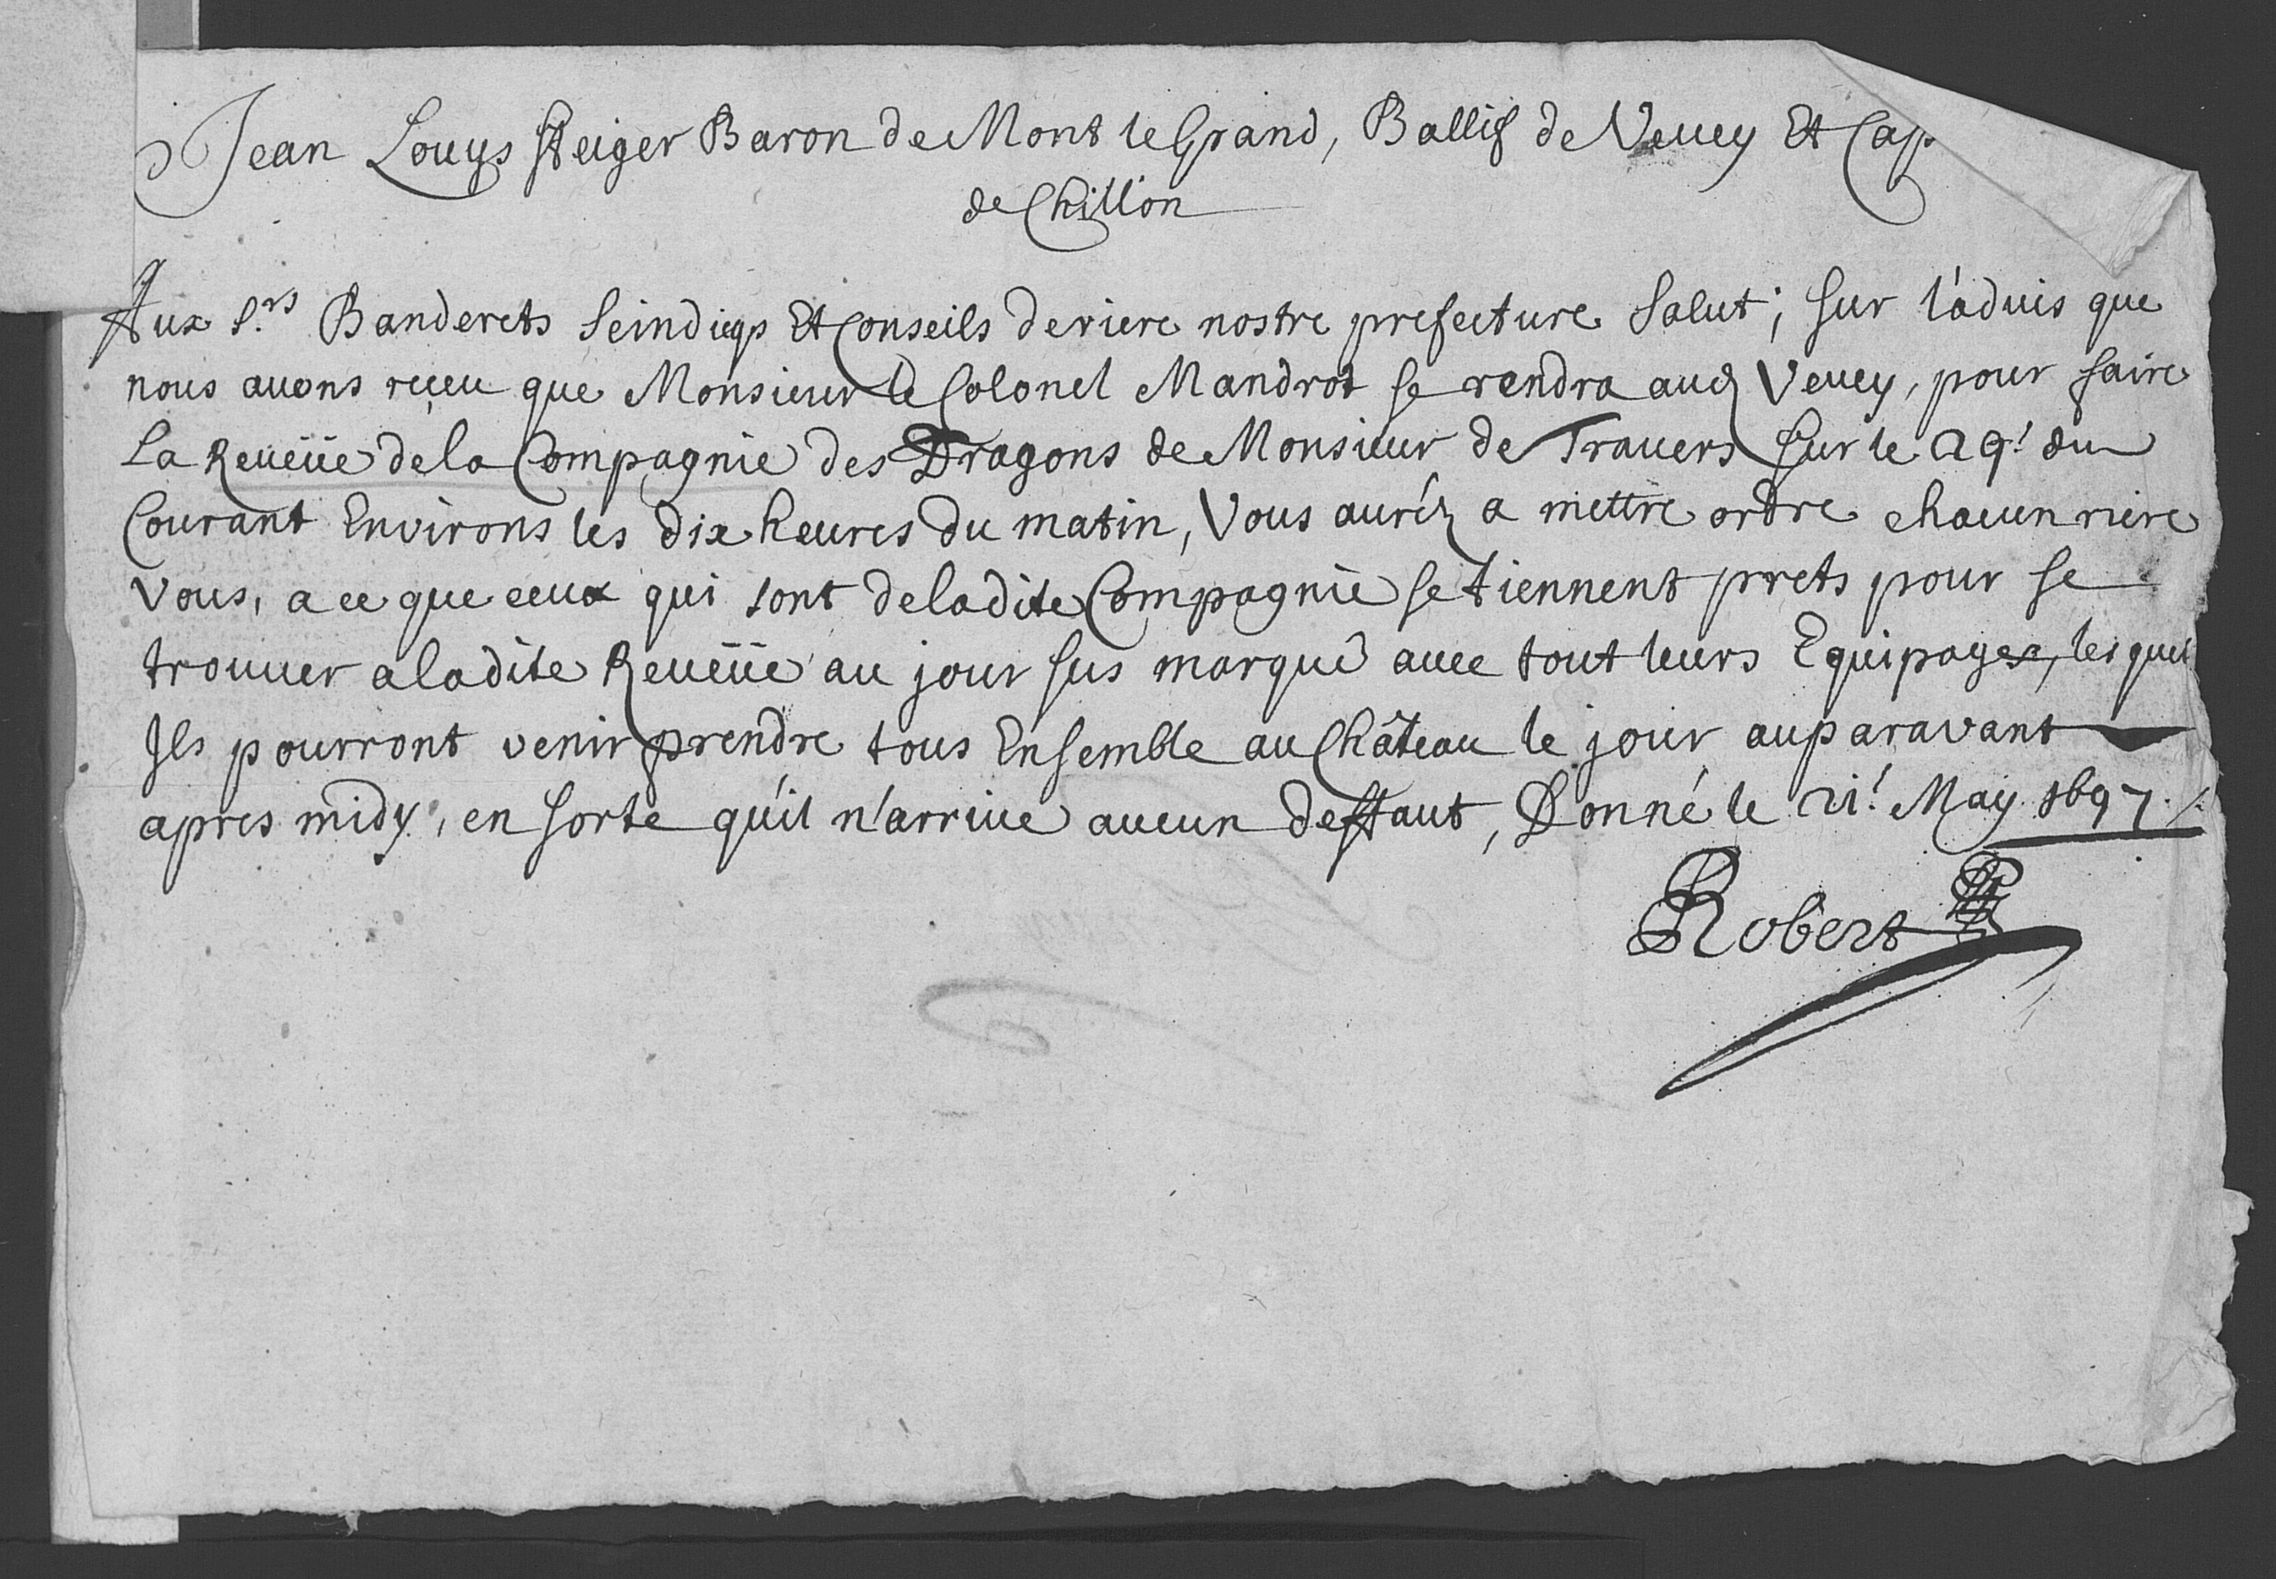 Jean Louys Steiger Baron de Mont le Grand, Ballif de Vevey Et Cap
de Chillon
Aux S.rs Banderets Seindicqs Et Conseils deriere nostre prefecture Salut; sur l'advis que
nous avons reçeu que Monsieur le Colonel Mandrot se rendra aud Vevey, pour faire
La Reveüe de la Compagnie des Dragons de Monsieur de Travers sur le 29.e du
Courant Environs les dix heures du matin, Vous auréz a mettre ordre chacun riere
Vous, a ce que ceux qui sont de ladite Compagnie se tiennent prets pour se
trouver a ladite Reveüe au jour sus marqué avec tout leurs Equipages, les quels
Ils pourront venir prendre tous Ensemble au Château le jour auparavant
apres midy, en sorte qu'il n'arrive aucun deffaut, Donné le 21.e May 1697./.
Robert